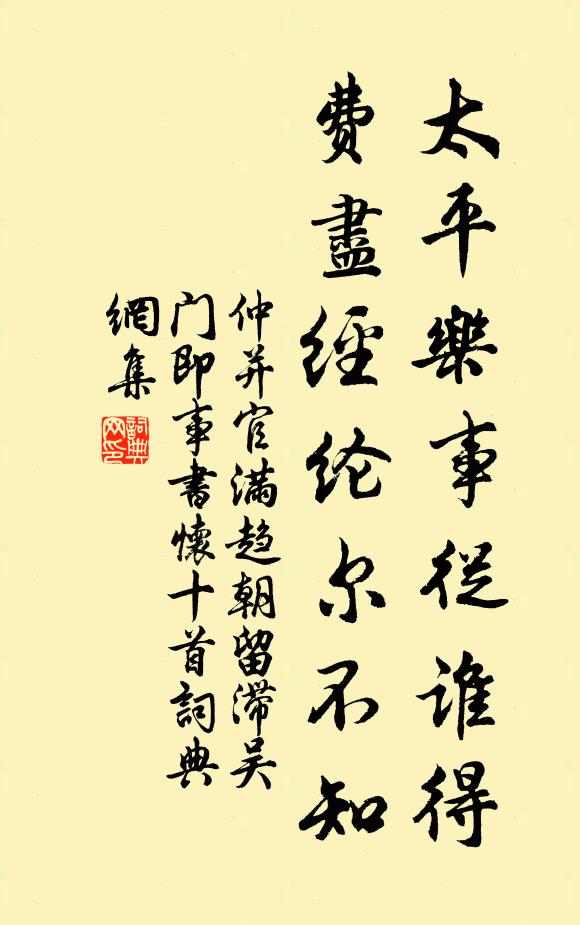 太平樂事從誰得
費盡經纶尔不知
仲并官满趋朝留滞吴
门即事書懷十首詞典
網集
詞典
网印